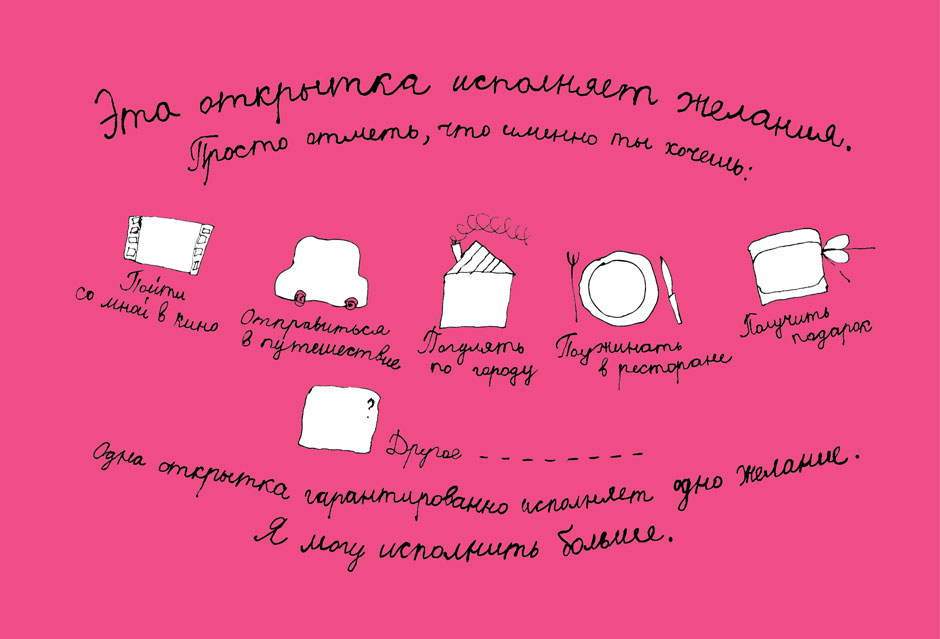 Эта открытка исполняет желания.
Просто отметь, что именно ты хочешь:
Пойти
со мной в кино
Отправиться
в путешествие
Погулять
по городу
Поужинать
в ресторане
Получить
подарок
?
Другое _ _ _ _ _ _ _ _
Одна открытка гарантированно исполняет одно желание.
Я могу исполнить больше.